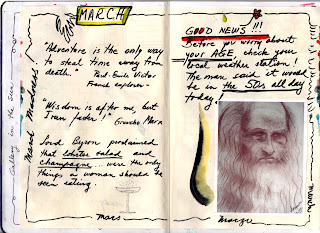 MARCH
"Adventure is the only way
to steal time away from
death." Paul-Emile Victor
French explorer -
"Wisdom is of for me, but
I ran faster!," Groucho Marx
Lord Byron proclaimed
that lobster salad and
champagne... were the only
things a woman should be
seen eating.
Mars
March Madness!
Gallery in the Sea
GOOD NEWS!!!
Before you worry about
your AGE, check your
local weather station!
The man said it would
be in the 50s all day
today!
Marzo